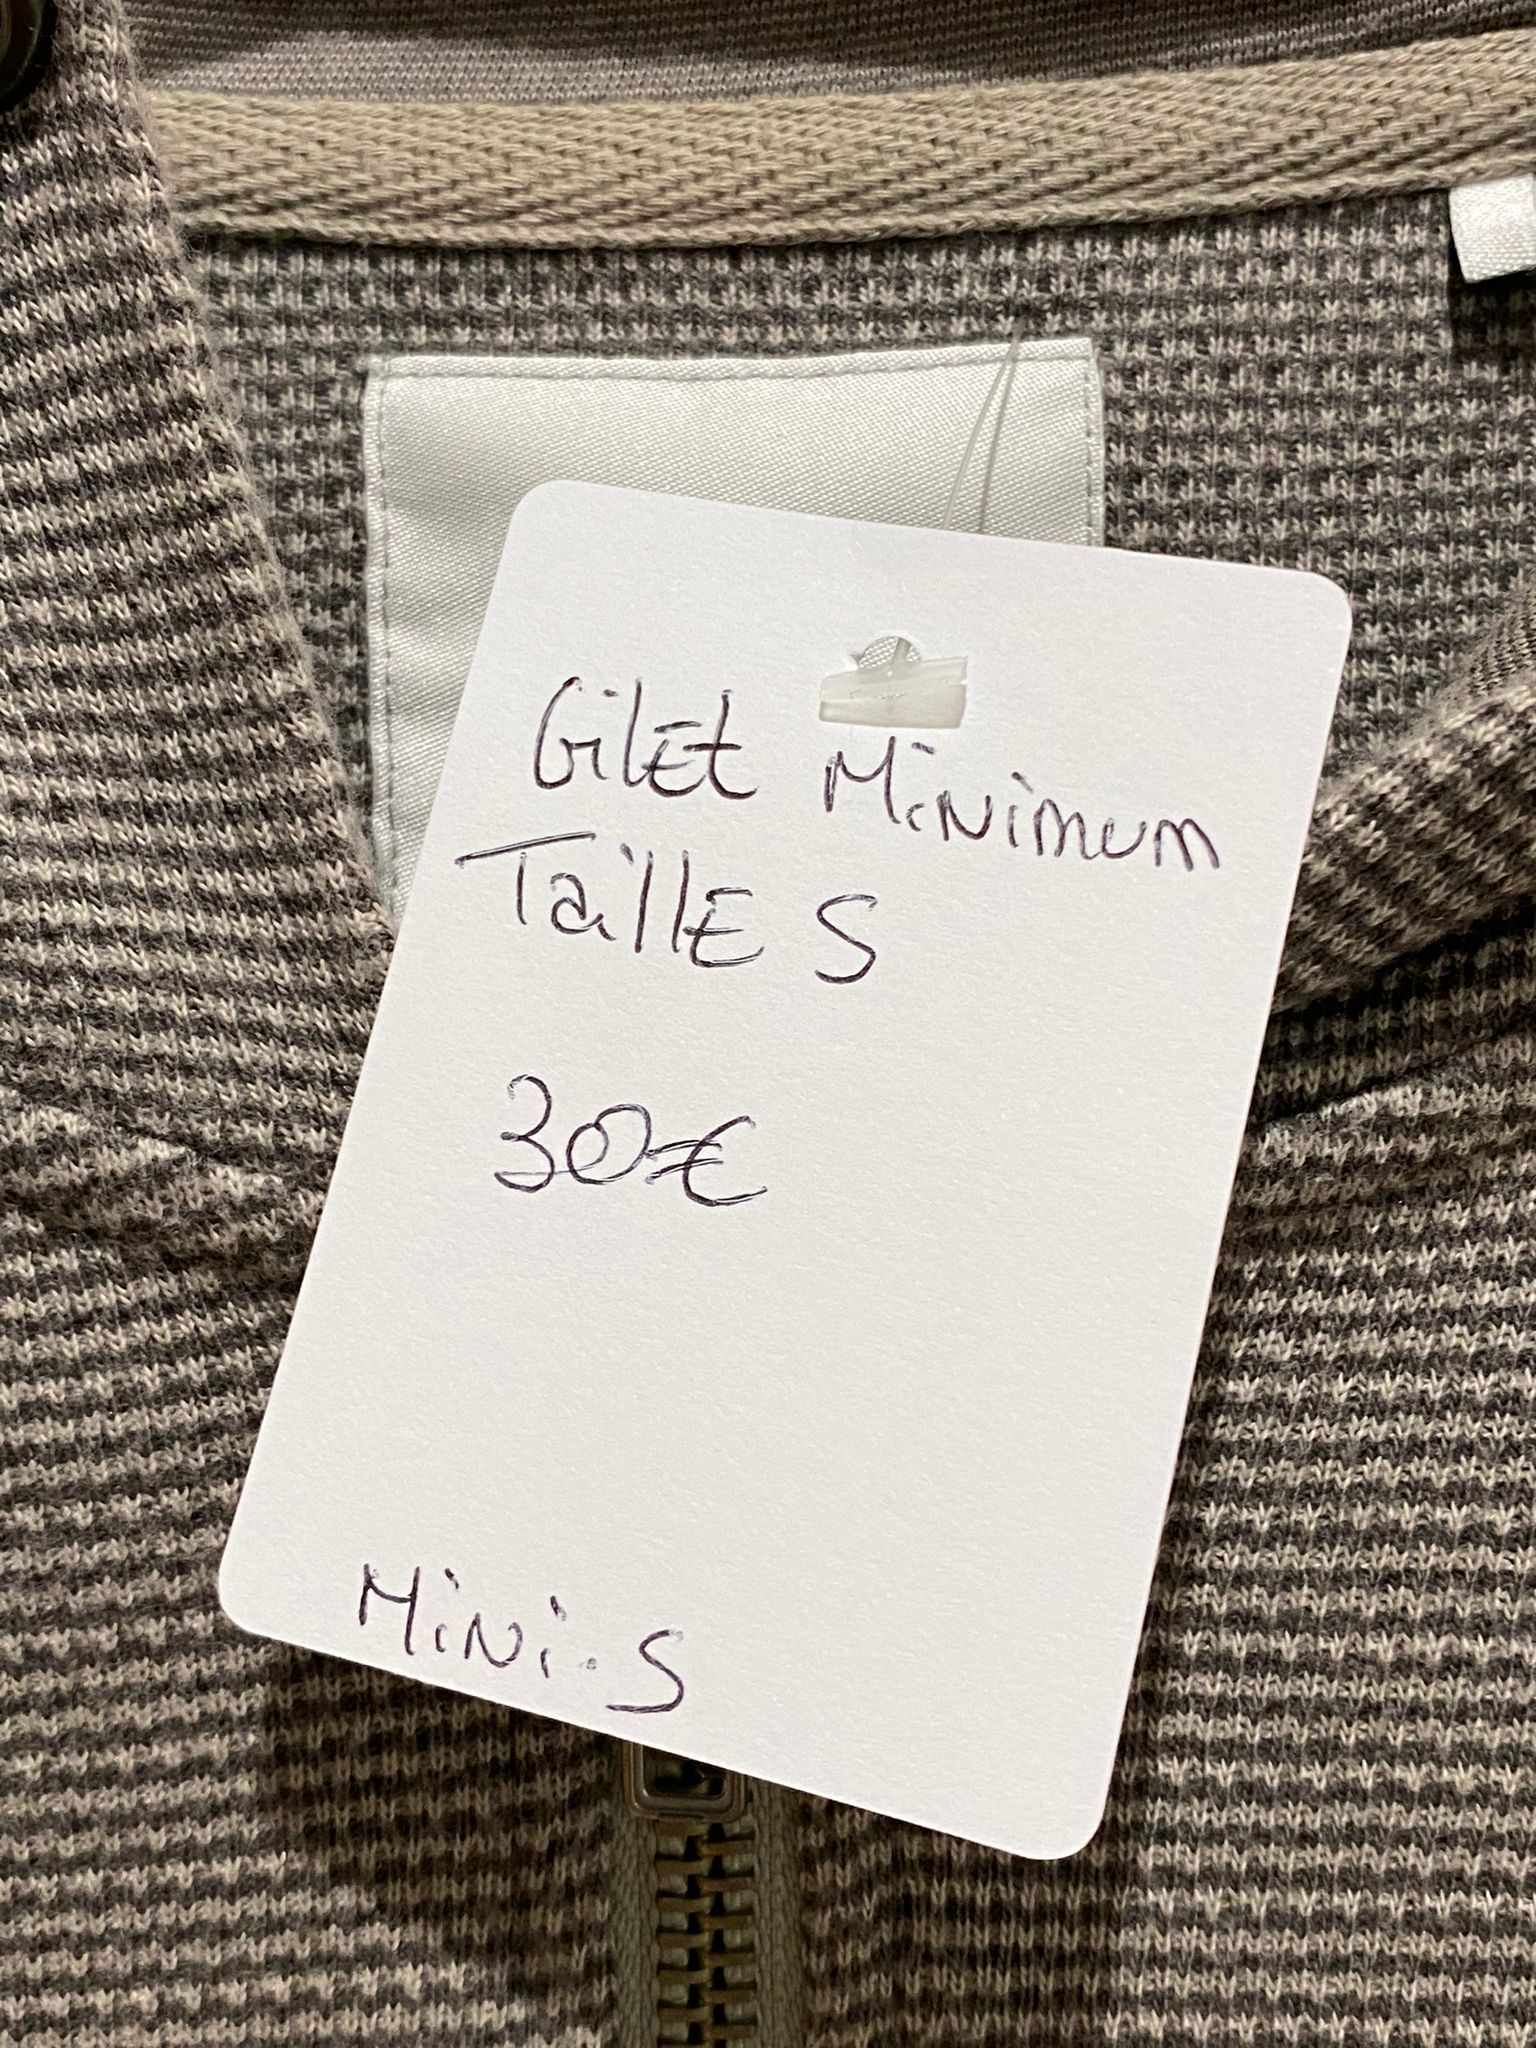 GilEt Minimum
TaillE S
30€
Mini.S